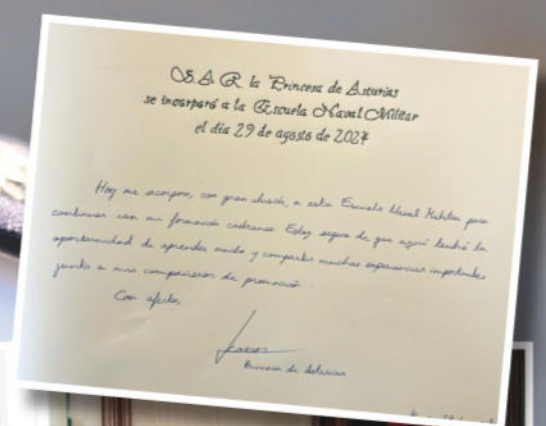 S. A. R. la Princesa de Asturias
se incorporó a la Escuela Naval Militar
el día 29 de agosto de 2024
Hoy me incorporo, con gran ilusión, a esta Escuela Naval Militar para
continuar con mi formación castrense. Estoy segura de que aquí tendré la
oportunidad de aprender mucho y compartir muchas experiencias importantes
junto a mis compañeros de promoción.
Con afecto,
Leonor
Princesa de Asturias